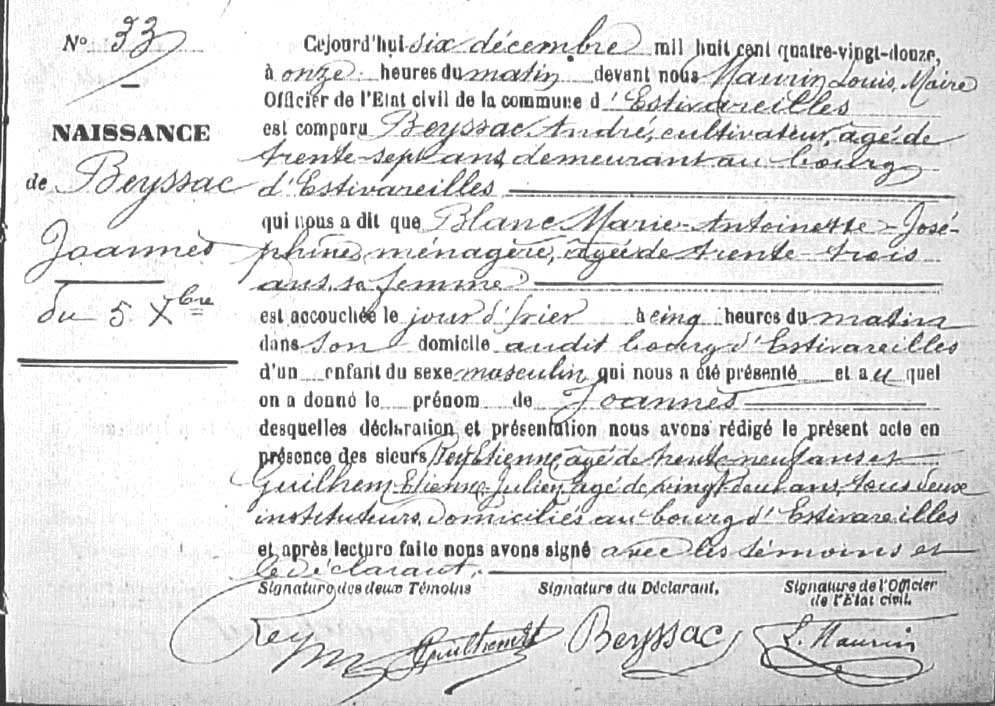 N° 33
NAISSANCE
de Beyssac
Joannes
du 5 Xbre
Cejourd'hui six décembre mil huit cent quatre-vingt-douze,
à onze heures du matin devant nous Maurin Louis, Maire
Officier de l'Etat civil de la commune d'Estivareilles
est comparu Beyssac André, cultivateur, agé de
trente-sept ans, demeurant au bourg
d'Estivareilles
qui nous a dit que Blanc Marie-Antoinette-José-
phine, ménagère, agée de trente-trois
ans, sa femme
est accouchée le jour d'hier à cinq heures du matin
dans son domicile audit bourg d'Estivareilles
d'un enfant du sexe masculin qui nous a été présenté et au quel
on a donné le prénom de Joannes
desquelles déclaration et présentation nous avons rédigé le présent acte en
présence des sieurs Etienne, agé de trente neuf ans et
Guilhem Etienne Julien, agé de vingt ans, tous deux
instituteurs, domiciliés au bourg d'Estivareilles
et après lecture faite nous avons signé avec les témoins et
le déclarant.
Signature des deux Témoins Signature du Déclarant, Signature de l'Officier
de l'Etat civil.
Guilhem Beyssac L. Maurin